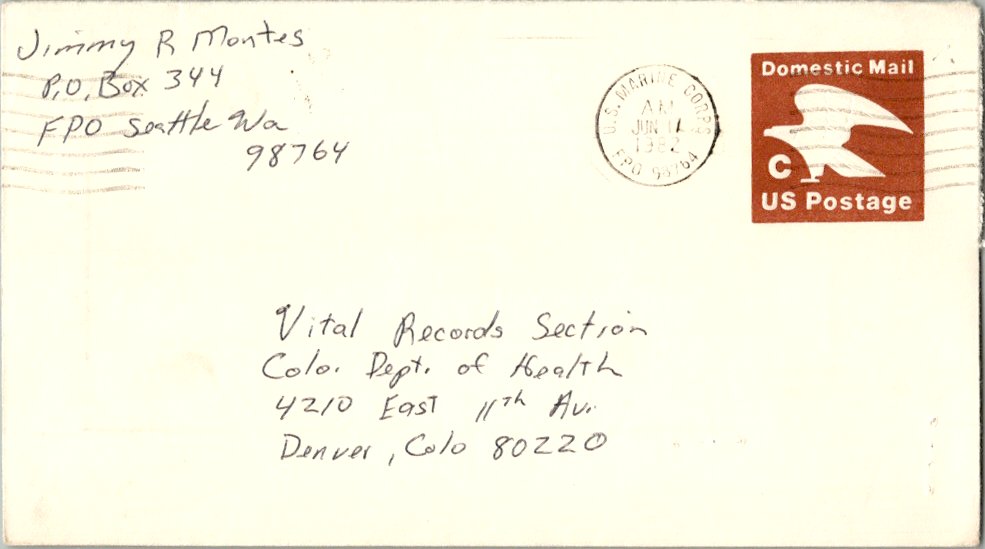 Jimmy R Montes
P.O. Box 344
FPO Seattle Wa
98764
U.S. MARINE CORPS
AM
JUN
1982
FPO 98764
Domestic Mail
C
US Postage
Vital Records Section
Colo. Dept. of Health
4210 East 11th Av.
Denver, Colo 80220